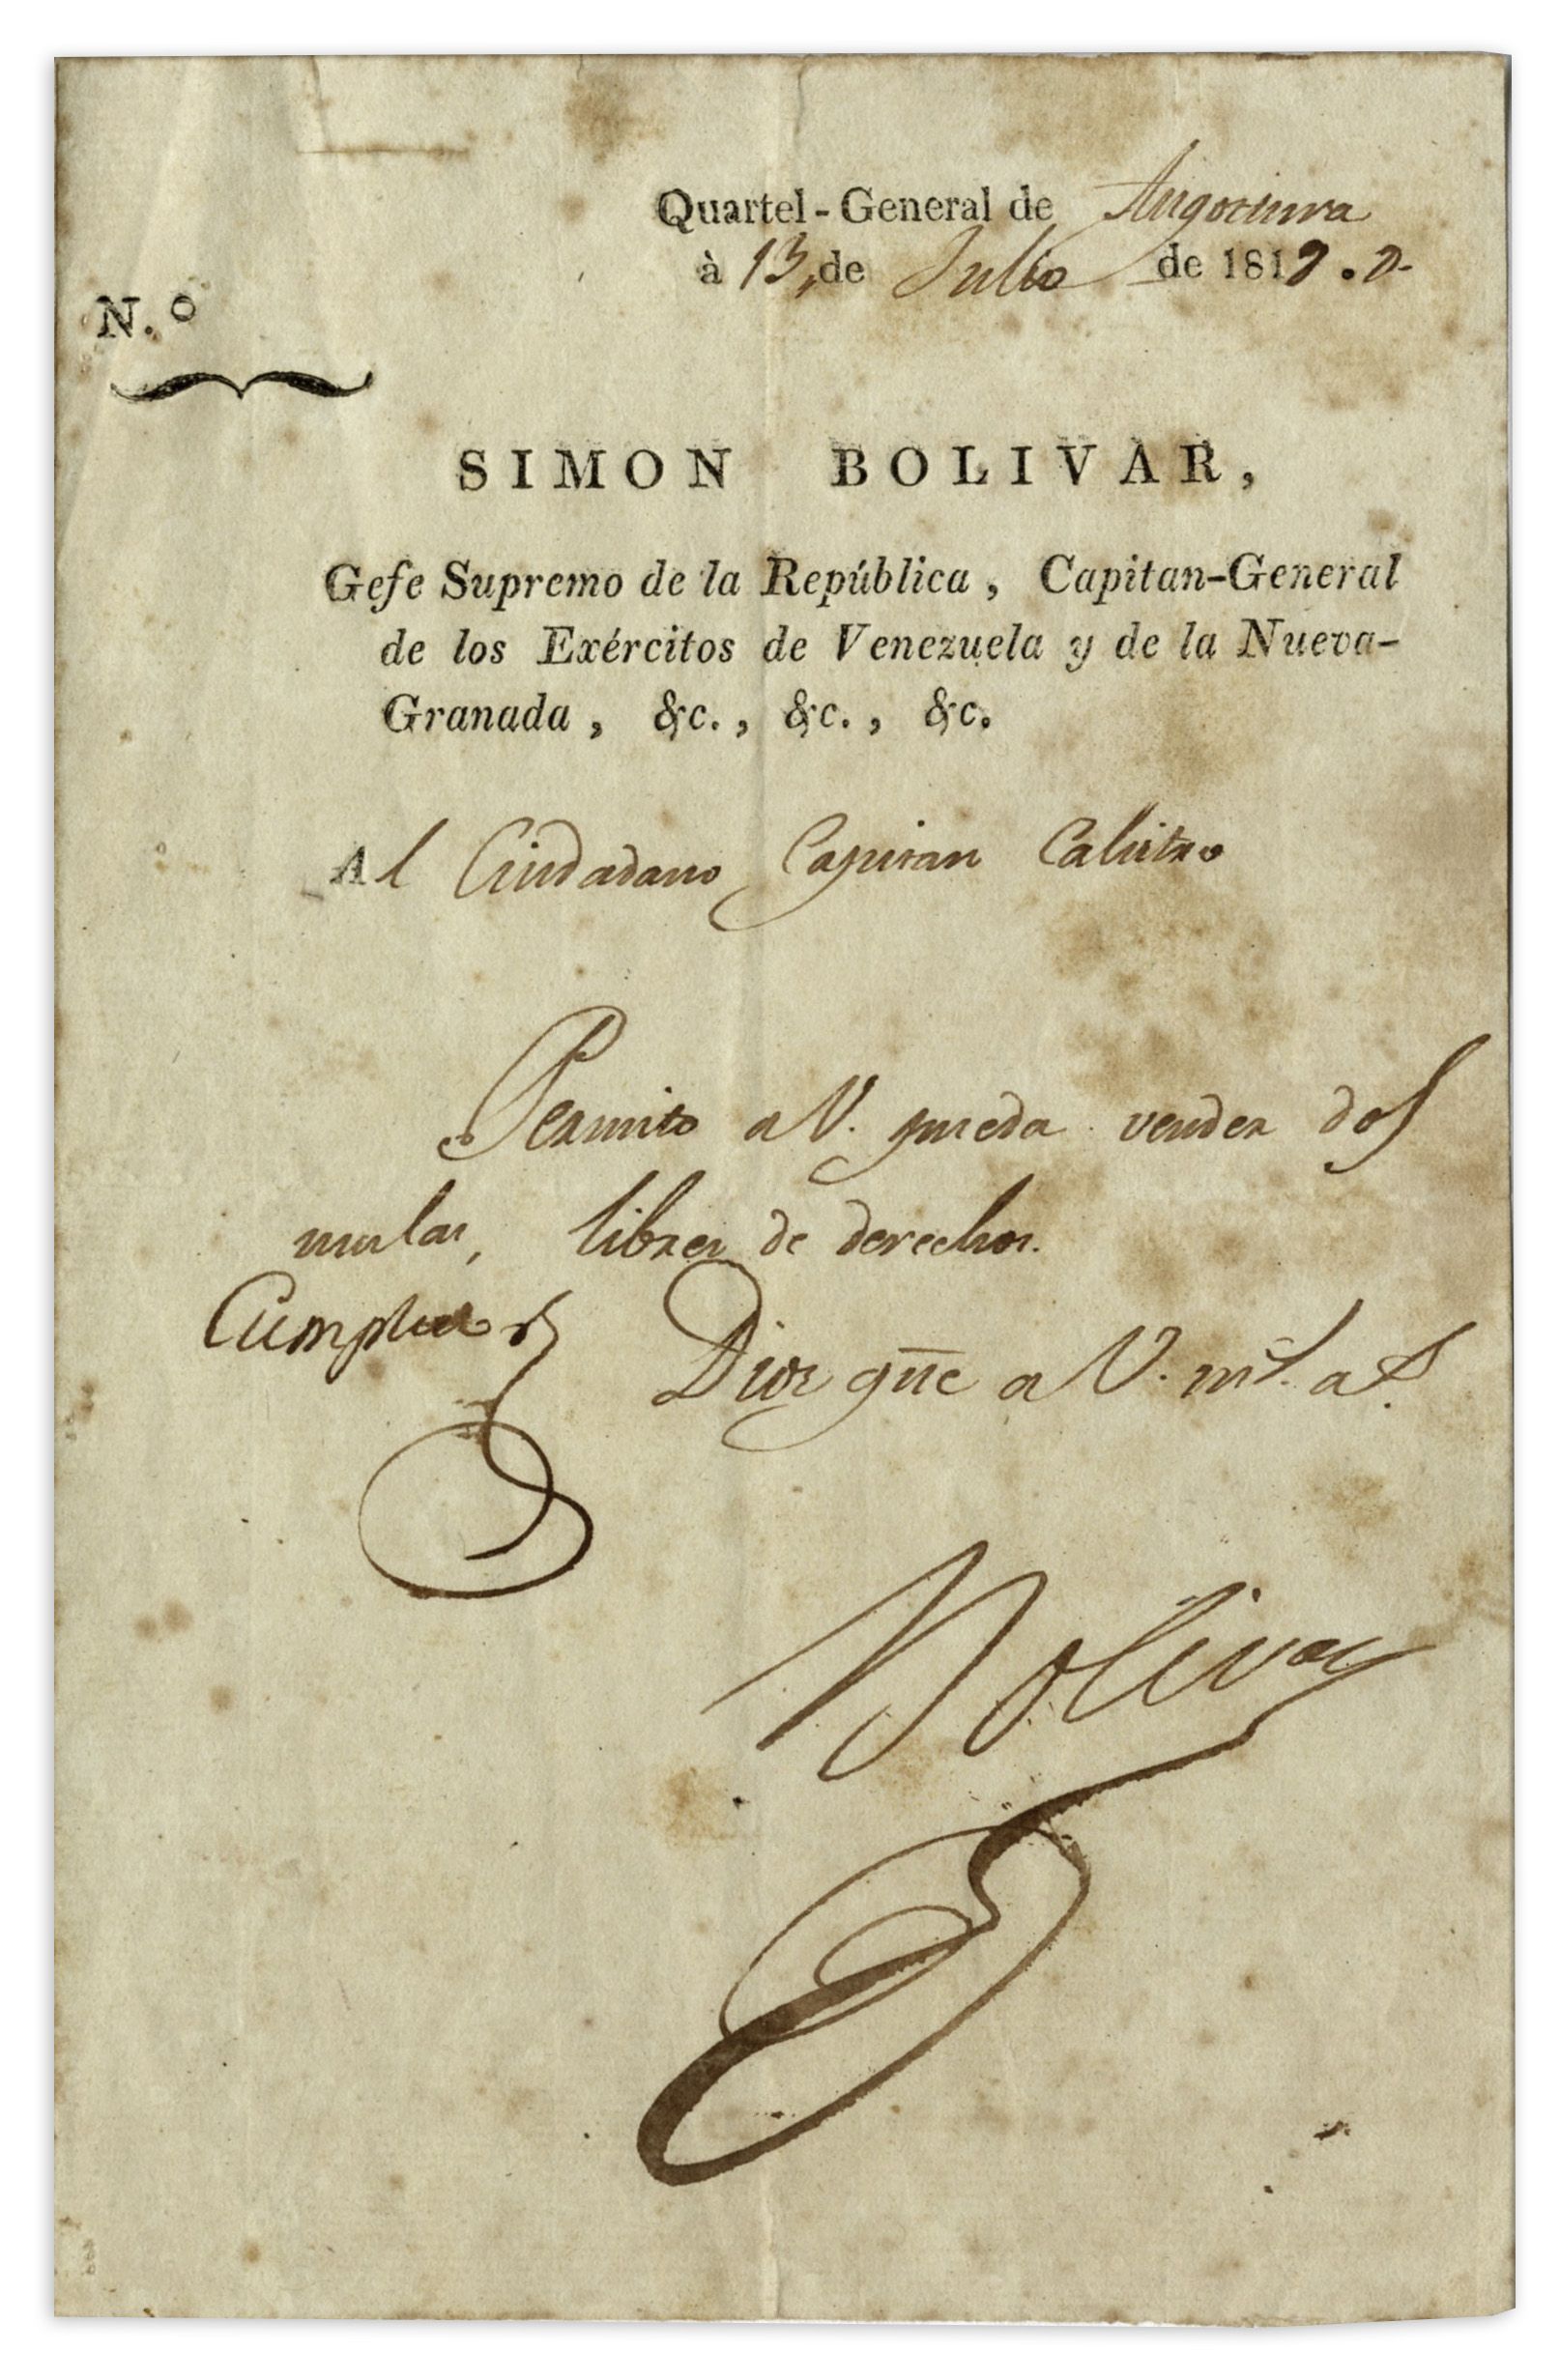 Quartel-General de Angostura
à 13, de Julio de 181
N.º
SIMON BOLIVAR,
Gefe Supremo de la República, Capitan-General
de los Exércitos de Venezuela y de la Nueva-
Granada, &c., &c., &c.
Al Ciudadano Capitan
Permito a V. pueda vender dos
mulas, libres de derechos.
Cumplase
Dios gue a V. ms. as.
Bolivar